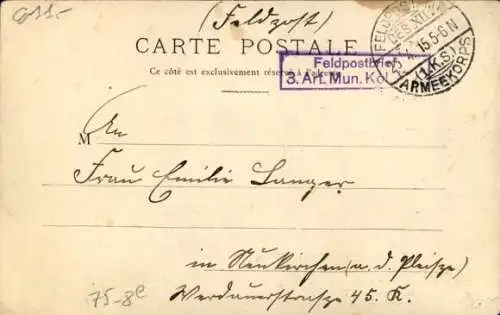 (Feldpost)
CARTE POSTALE
Ce côté est exclusivement réservé à l'adresse
Feldpostbrief
3. Art. Mun. Kol.
15.5-6N
(1.K.S)
ARMEEKORPS
M
An
Frau Emilie Langer
in Neukirchen (a. d. Pleisze)
Werdauerstrasze 45. K.
75-8e